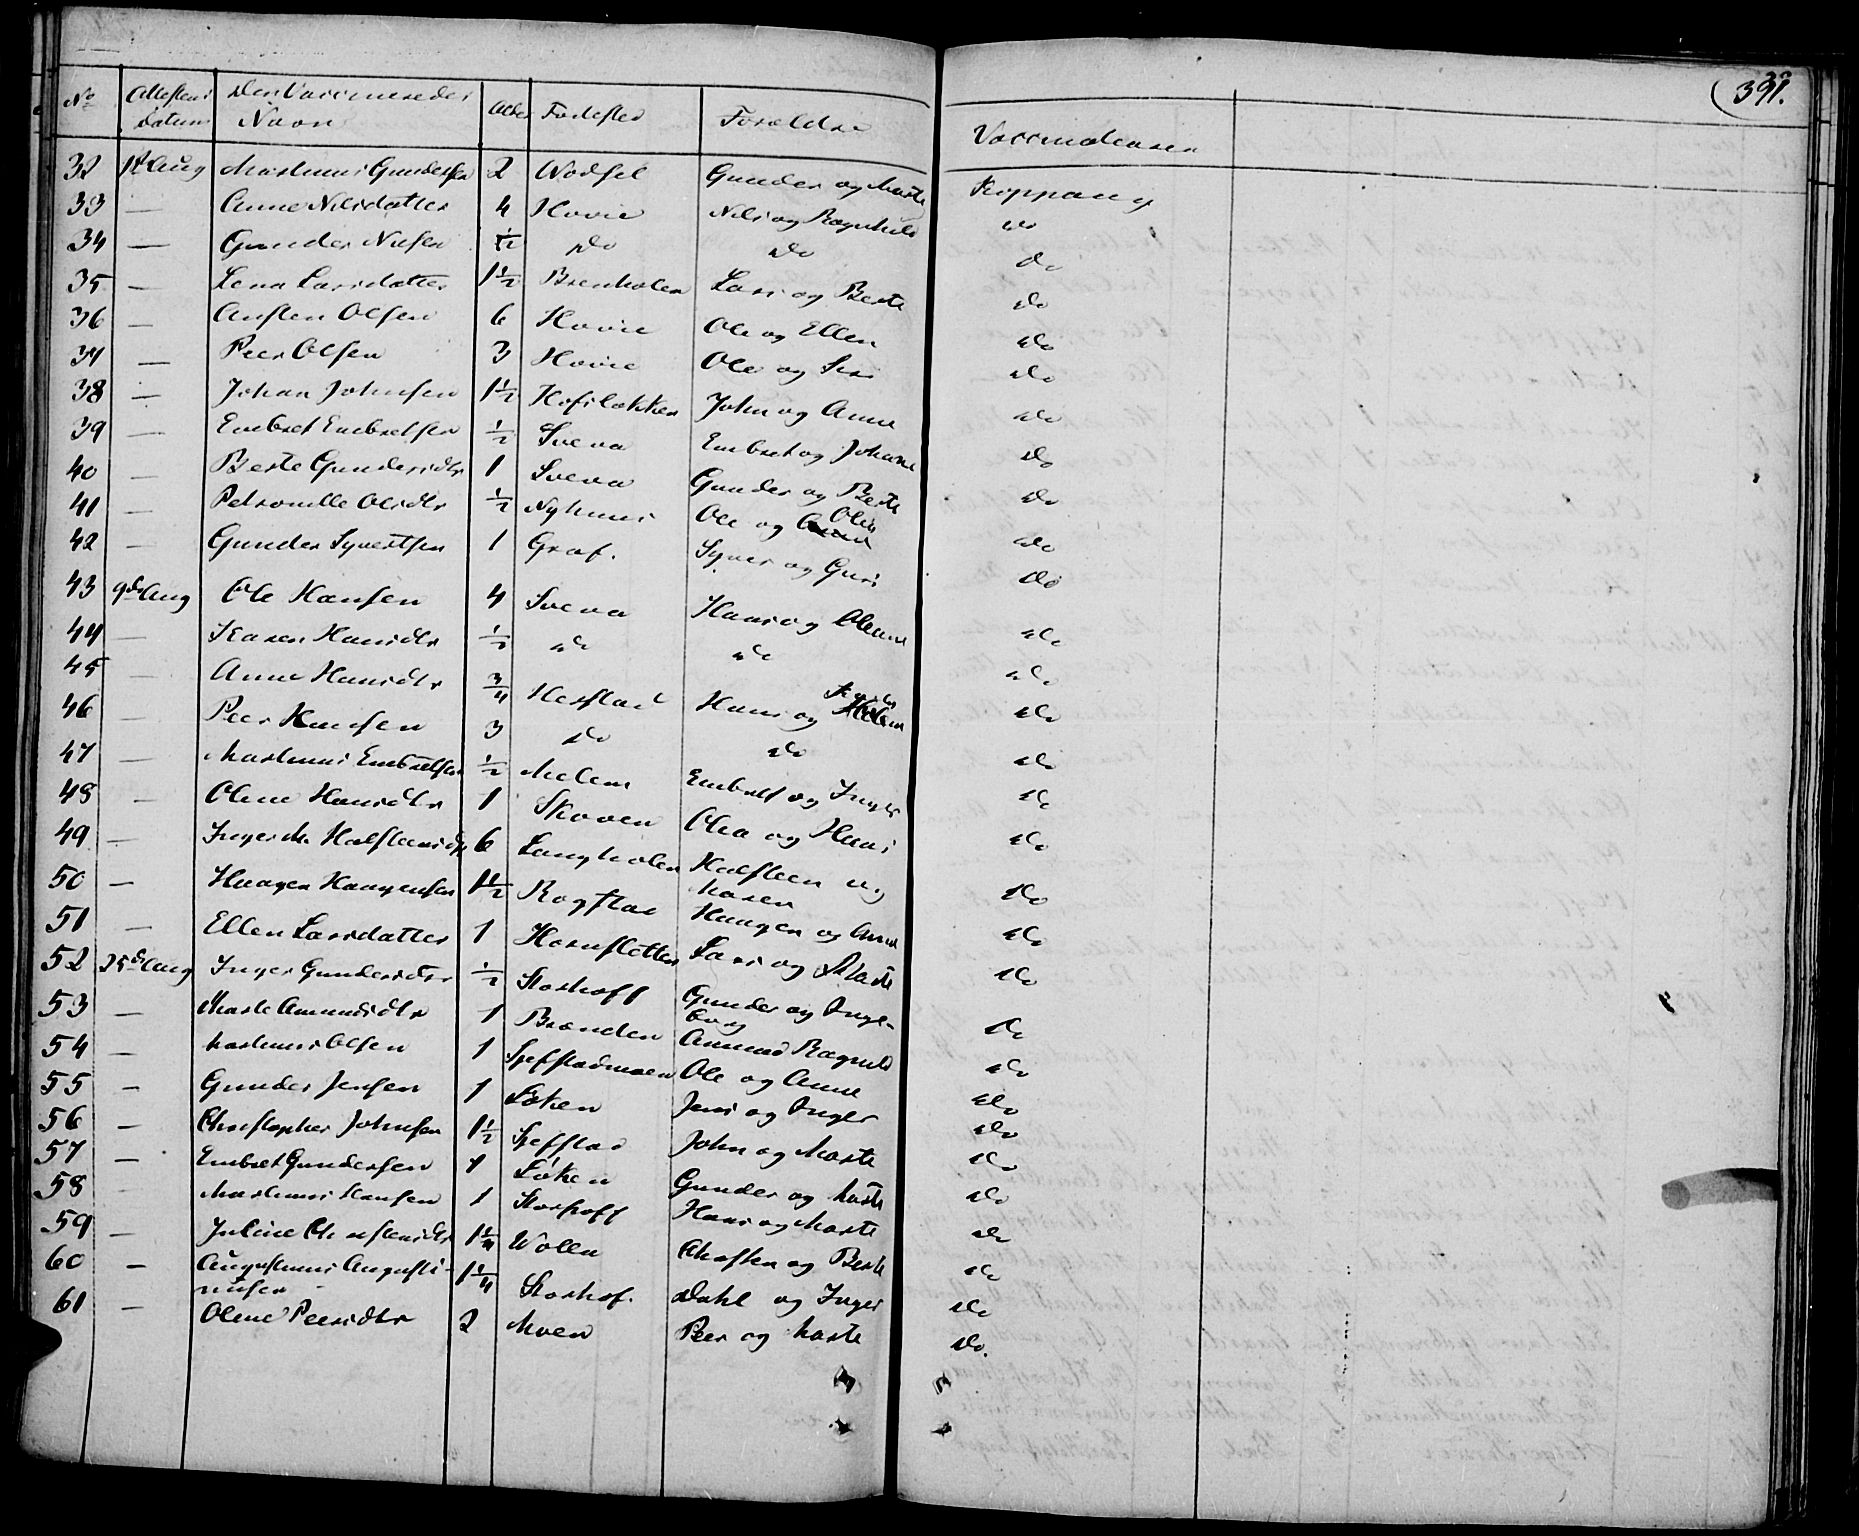 391.
No Attestens Datum Den Vaccineredes Navn Alder Fødested Forældre Vaccinateuren
32 1st Aug Mathias Gundersen 2 Wodsel Gunder og Marte Koppang
33 — Anne Nilsdatter 4 Hovie Nils og Ragnhild do
34 — Gunder Nilsen ½ Do Do Do
35 — Lena Larsdatter 1½ Brenholen Lars og Berte Do
36 — Austen Olsen 6 Hovie Ole og Ellen Do
37 — Peer Olsen 3 Hovie Ole og Siri Do
38 — Johan Johnsen 1½ John og Anne Do
39 — Embret Embretsen ½ Svena Embret og Johane Do
40 — Berte Gundersdtr 1 Svena Gunder og Berte Do
41 — Petronille Olsdtr ½ Nyhuus Ole og Olia Do
42 — Gunder Syvertsen 1 Graf. Syver og Guri Do
43 9de Aug Ole Hansen 4 Svena Hans og Oleane Do
44 — Karen Hansdtr ½ do do Do
45 — Anne Hansdtr ¾ Herstad Hans og Do
46 — Peer Hansen 3 Do Do Do
47 — Marthinus Embretsen ½ Melem Embret og Inger Do
48 — Olene Hansdtr 1 Skoven Olea og Hans Do
49 — Inger M. Halfstensdtr 6 Langholen Halfsteen og Maren Do
50 — Haagen Haagensen 1½ Rogstad Haagen og Anne Do
51 — Ellen Larsdatter 1 Hornsletten Lars og Marte Do
52 25de Aug Inger Gundersdtr ½ Storhoff Gunder og Inge-
borg Do
53 — Marte Amundsdtr 1 Brænden Amund Ragnild Do
54 — Marthinus Olsen 1 Ole og Anne Do
55 — Gunder Jensen 1 Løken Jens og Inger Do
56 — Christopher Johnsen 1½ John og Marte Do
57 — Embret Gundersen 1 Løken Gunder og Marte Do
58 — Marthinus Hansen 1 Storhoff Hans og Marte Do
59 — Juline Christensdtr 1¼ Wolen Christen og Berte Do
60 — Augustinus Augusti-
nusen 1¼ Storhof. Dahl og Inger Do
61 — Olene Peersdtr 2 Moen Peer og Marte Do.